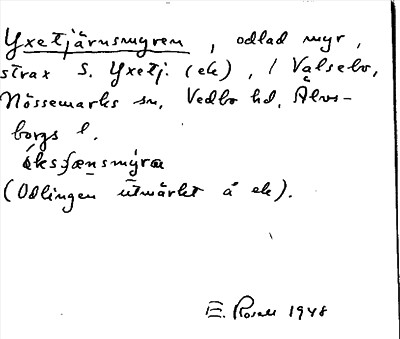 Yxetjärnsmyren, odlad myr,
strax S. Yxetj. (ek), i Vålsebo,
Nössemarks sn, Vedbo hd, Älvs-
borgs l.
(Odlingen utmärkt å ek).
E. Rosell 1948